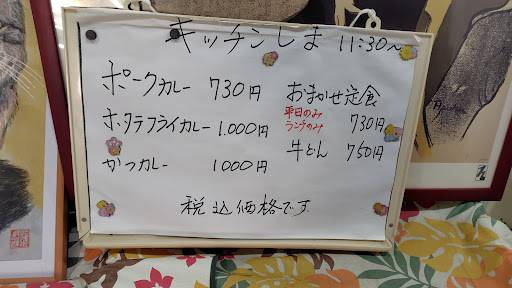 キッチンしま 11:30〜
ポークカレー 730円
ホタテフライカレー 1.000円
かつカレー 1000円
おまかせ定食
平日のみ
ランチのみ 730円
牛とん 750円
税込価格です